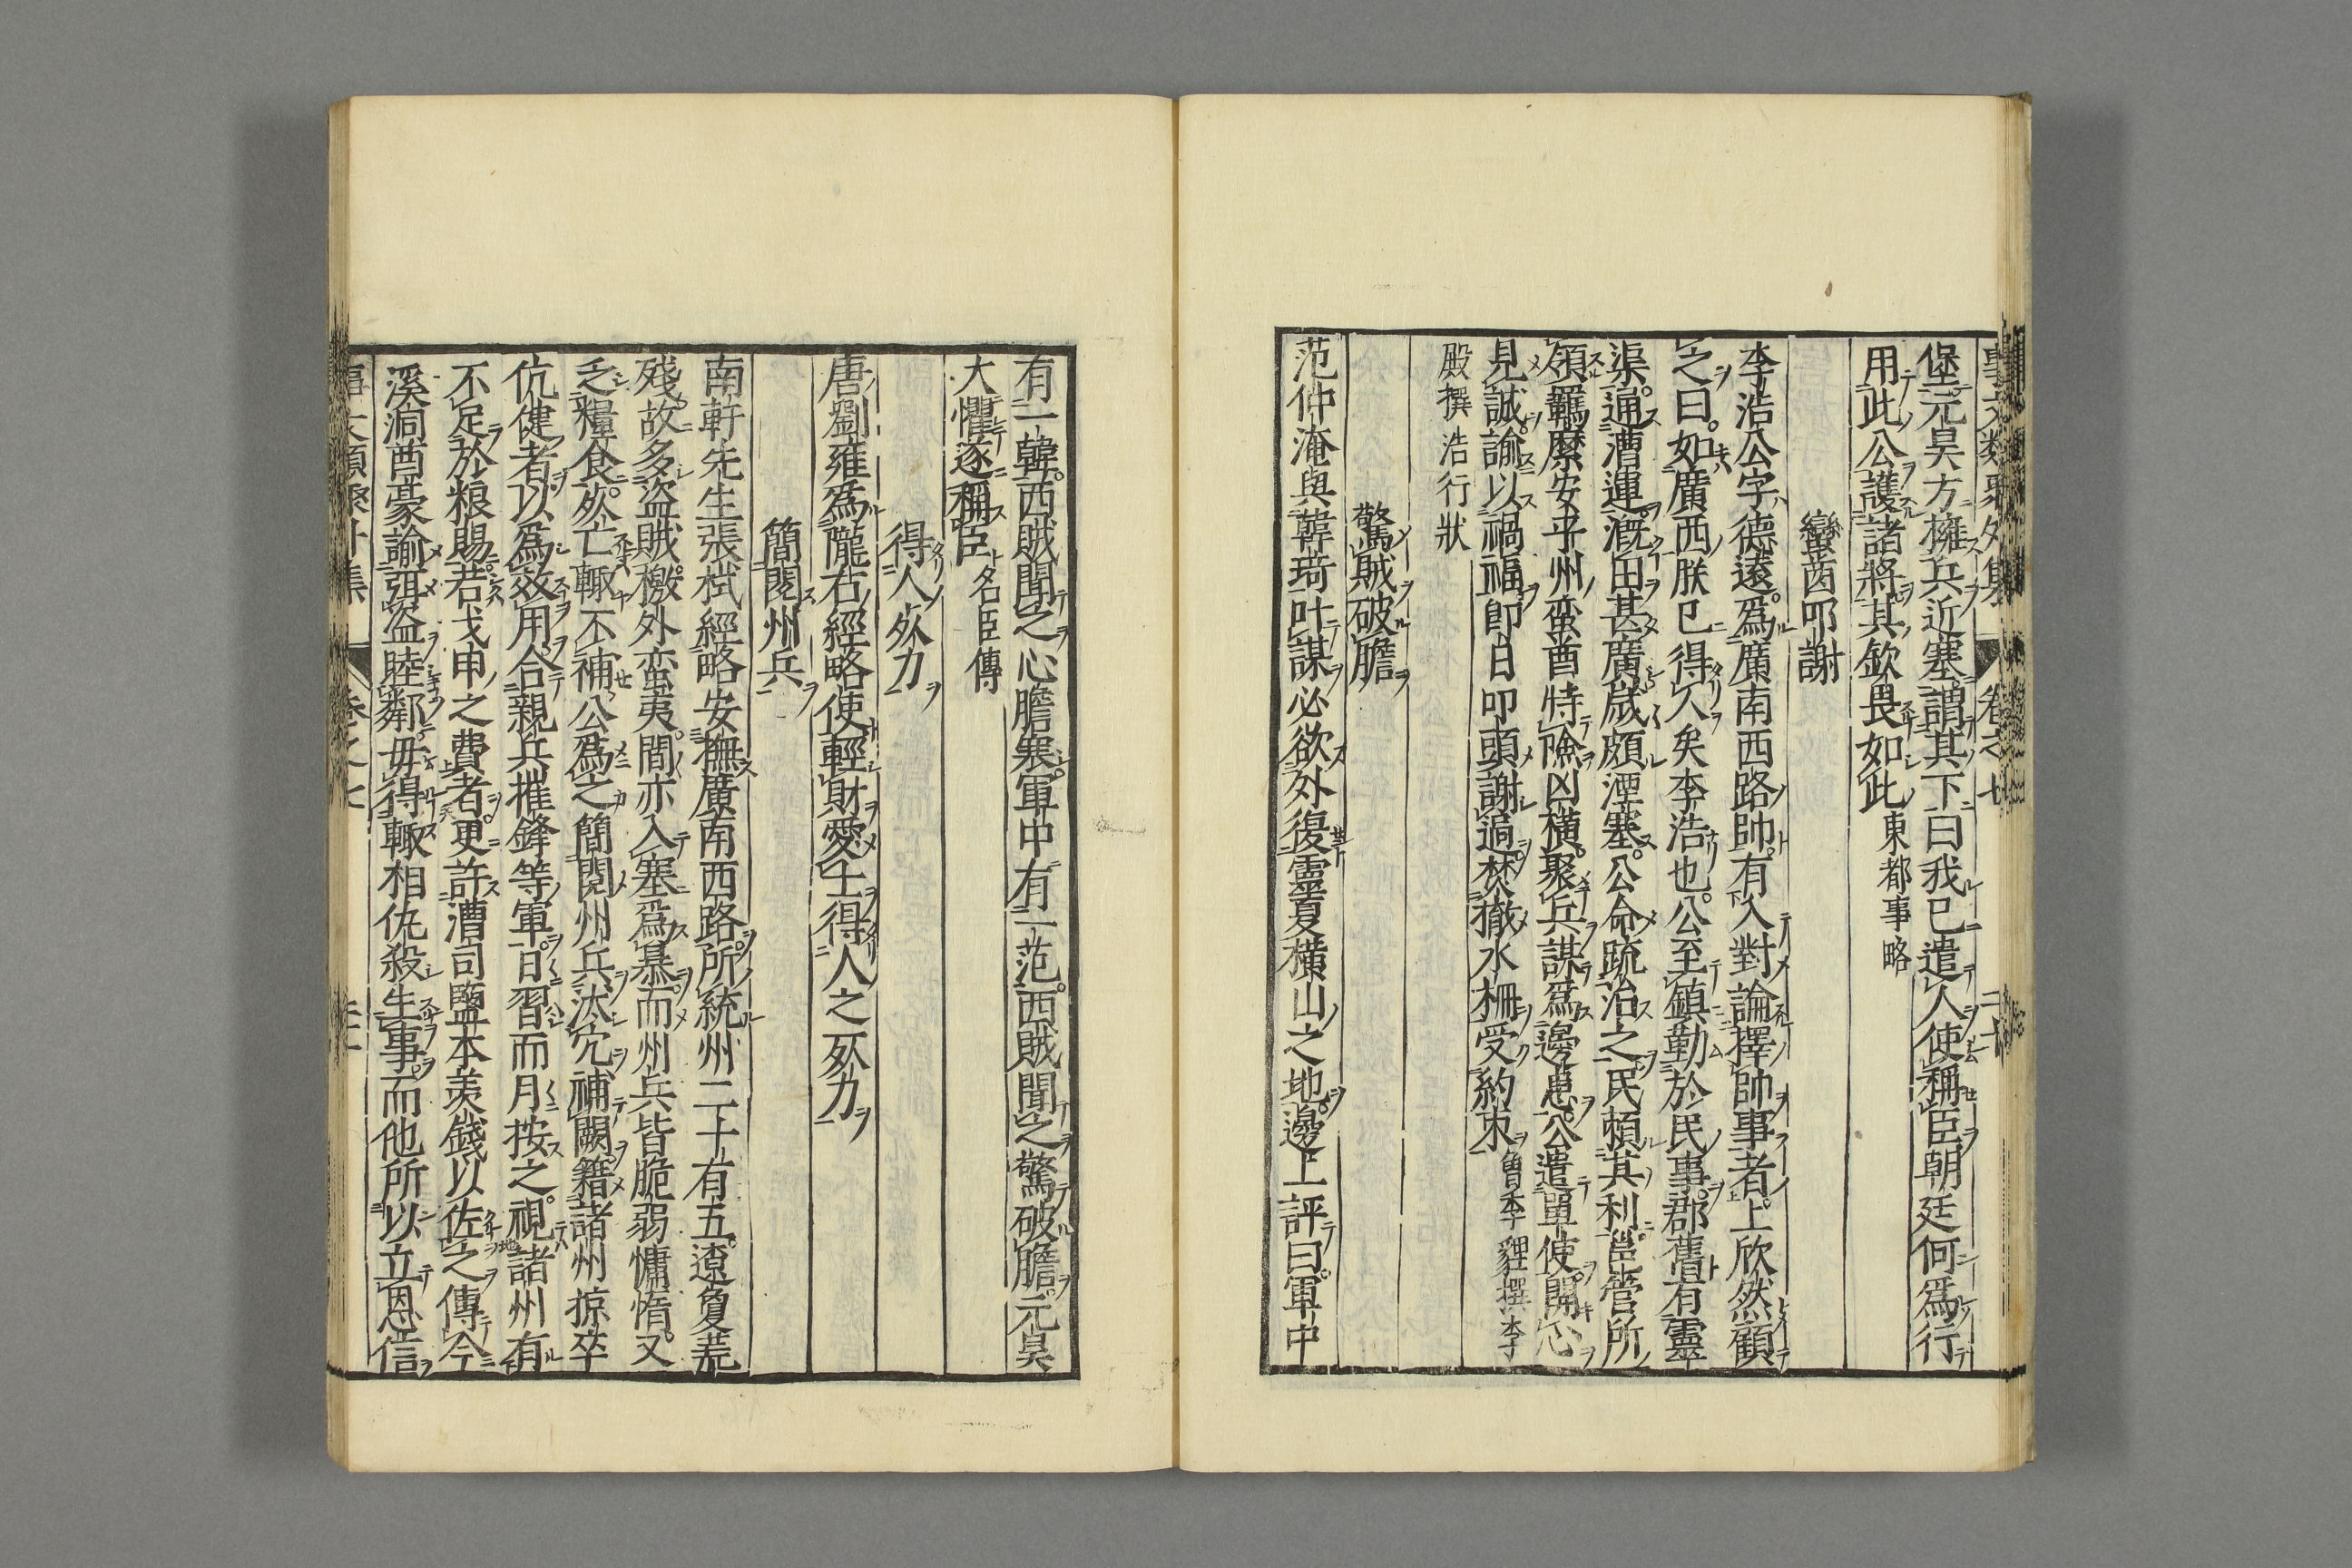 堡元昊方擁兵近塞謂其下曰我已遣人使稱臣朝廷何爲行
用此公護諸將其欽畏如此東都事略
蠻酋叩謝
李浩公字德遠爲廣南西路帥有入對論擇帥事者上欣然顧
之曰如廣西朕已得人矣李浩也公至鎮勤於民事郡舊有靈
渠通漕運漑田甚廣歲頗湮塞公命疏治之民頼其利邕管所
領羈縻安平州蛮酋恃險凶橫聚兵謀爲邊患公遣單使開心
見誠諭以禍福即日叩頭謝過焚撤水柵受約束
殿撰浩行狀
驚賊破膽
范仲淹與韓琦叶謀必欲外復靈夏橫山之地邊上評曰軍中
有一韓西賊聞之心膽寒軍中有一范西賊聞之驚破膽元昊
大懼遂稱臣名臣傳
得人死力
唐劉雍爲隴右經略使輕財愛士得人之死力
簡閲州兵
南軒先生張栻經略安撫廣南西路所統州二十有五遼夐荒
殘故多盗賊檄外蛮夷間亦入塞爲暴而州兵皆脆弱慵惰又
乏糧食死亡輙不補公爲之簡閲州兵汰冗補闕籍諸州掠卒
伉健者以爲效用合親兵摧鋒等軍日習而月按之視諸州有
不足於粮賜若戈甲之費者更許漕司鹽本羡錢以佐之傳令
溪洞酋豪諭弭盗睦鄰毋得輙相仇殺生事而他所以立恩信